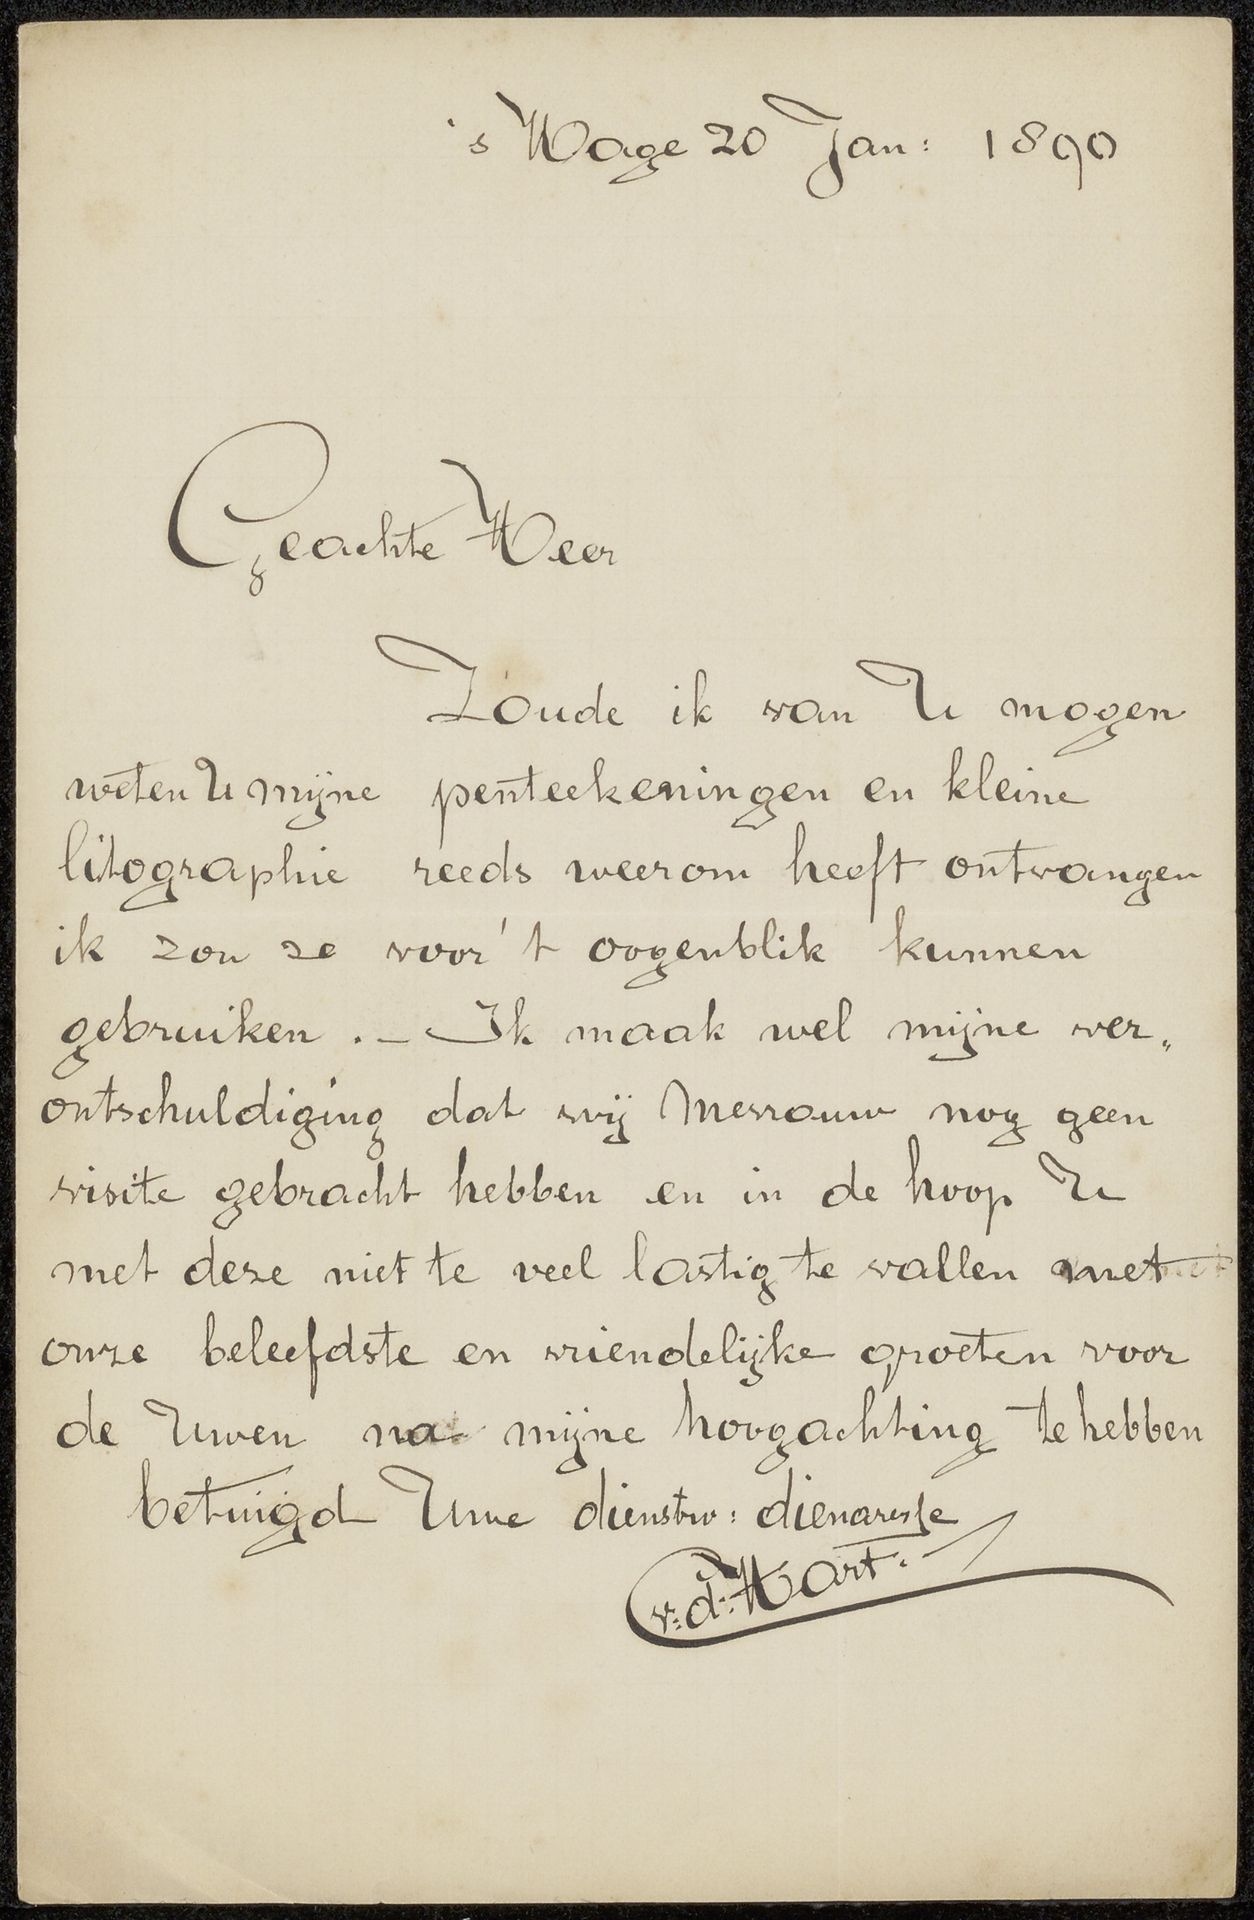 's Hage 20 Jan: 1890
Geachte Heer
Zoude ik van U mogen
weten U mijne penteekeningen en kleine
litographie reeds weerom heeft ontvangen
ik zou ze voor 't oogenblik kunnen
gebruiken . – Ik maak wel mijne ver„
ontschuldiging dat wij Mevrouw nog geen
visite gebracht hebben en in de hoop U
met deze niet te veel lastig te vallen met
onze beleefdste en vriendelijke groeten voor
de Uwen na mijne hoogachting te hebben
betuigd Uwe dienstw: dienaresse
v:d:Hart.